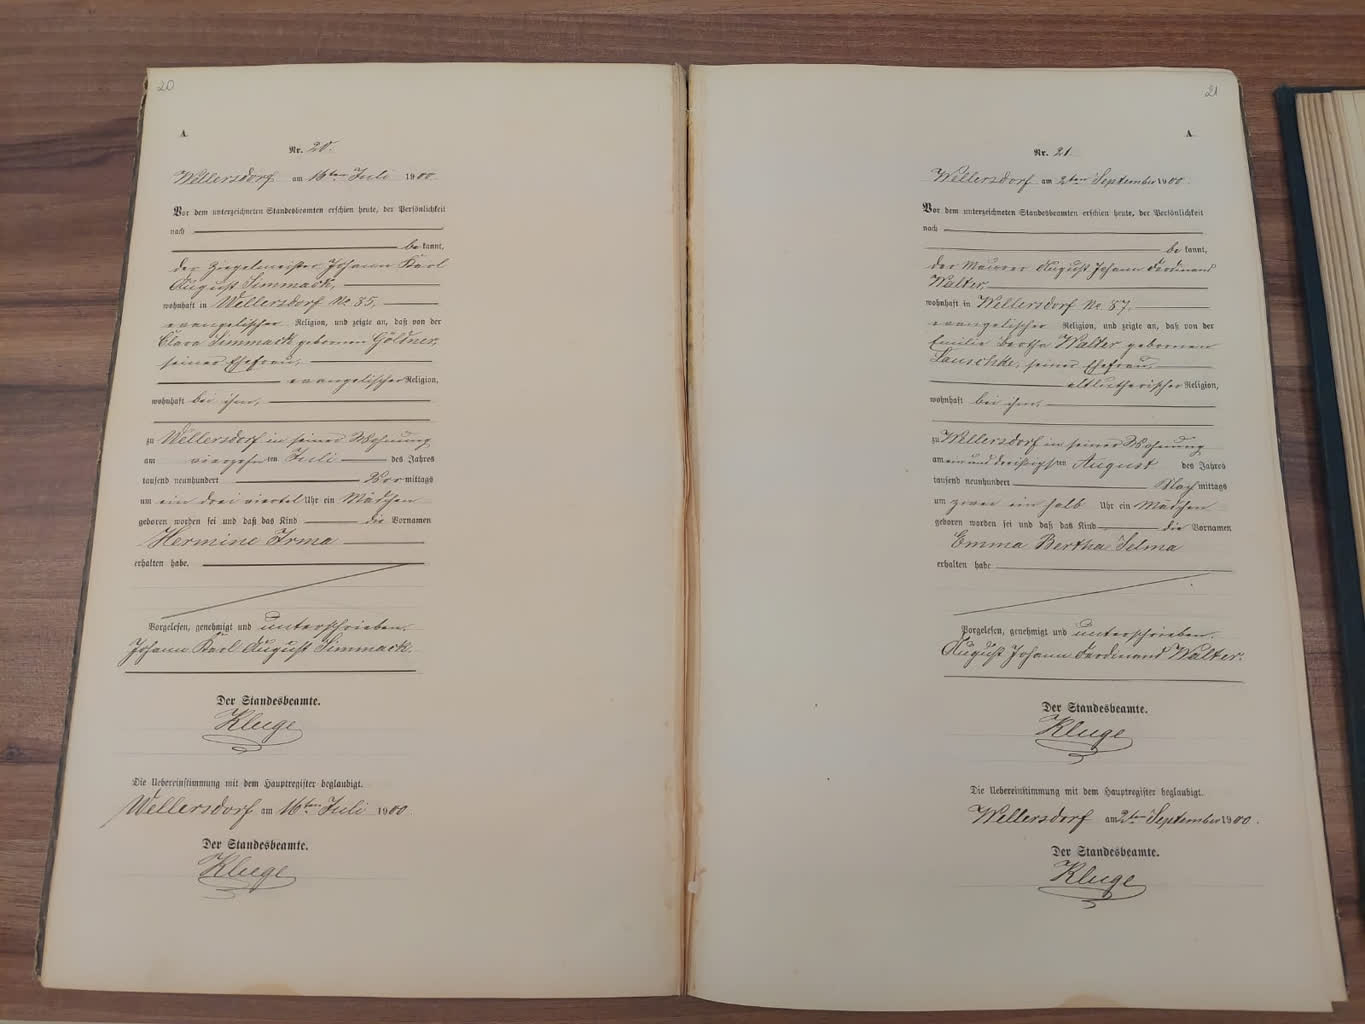 20
A.
Nr. 20.
Wellersdorf am 16ten Juli 1900.
Vor dem unterzeichneten Standesbeamten erschien heute, der Persönlichkeit
nach
be kannt,
der Ziegelmeister Johann Karl
August Simmack,
wohnhaft in Wellersdorf No. 85,
evangelischer Religion, und zeigte an, daß von der
Clara Simmack geborenen Göldner,
seiner Ehefrau,
evangelischer Religion,
wohnhaft bei ihm,
zu Wellersdorf in seiner Wohnung
am vierzehnten Juli des Jahres
tausend neunhundert Vor mittags
um ein drei viertel Uhr ein Mädchen
geboren worden sei und daß das Kind die Vornamen
Hermine Irma
erhalten habe.
Vorgelesen, genehmigt und unterschrieben.
Johann Karl August Simmack.
Der Standesbeamte.
Kluge
Die Uebereinstimmung mit dem Hauptregister beglaubigt.
Wellersdorf am 16ten Juli 1900.
Der Standesbeamte.
Kluge
21
A.
Nr. 21.
Wellersdorf am 2ten September 1900.
Vor dem unterzeichneten Standesbeamten erschien heute, der Persönlichkeit
nach
be kannt,
der Maurer August Johann Ferdinand
Walter,
wohnhaft in Wellersdorf No. 87.
evangelischer Religion, und zeigte an, daß von der
Emilie Bertha Walter geborenen
Lauschke, seiner Ehefrau,
altlutherischer Religion,
wohnhaft bei ihm,
zu Wellersdorf in seiner Wohnung
am ein und dreißigsten August des Jahres
tausend neunhundert Nach mittags
um zwei ein halb Uhr ein Mädchen
geboren worden sei und daß das Kind die Vornamen
Emma Bertha Selma
erhalten habe
Vorgelesen, genehmigt und unterschrieben.
August Johann Ferdinand Walter.
Der Standesbeamte.
Kluge
Die Uebereinstimmung mit dem Hauptregister beglaubigt.
Wellersdorf am 2ten September 1900.
Der Standesbeamte.
Kluge